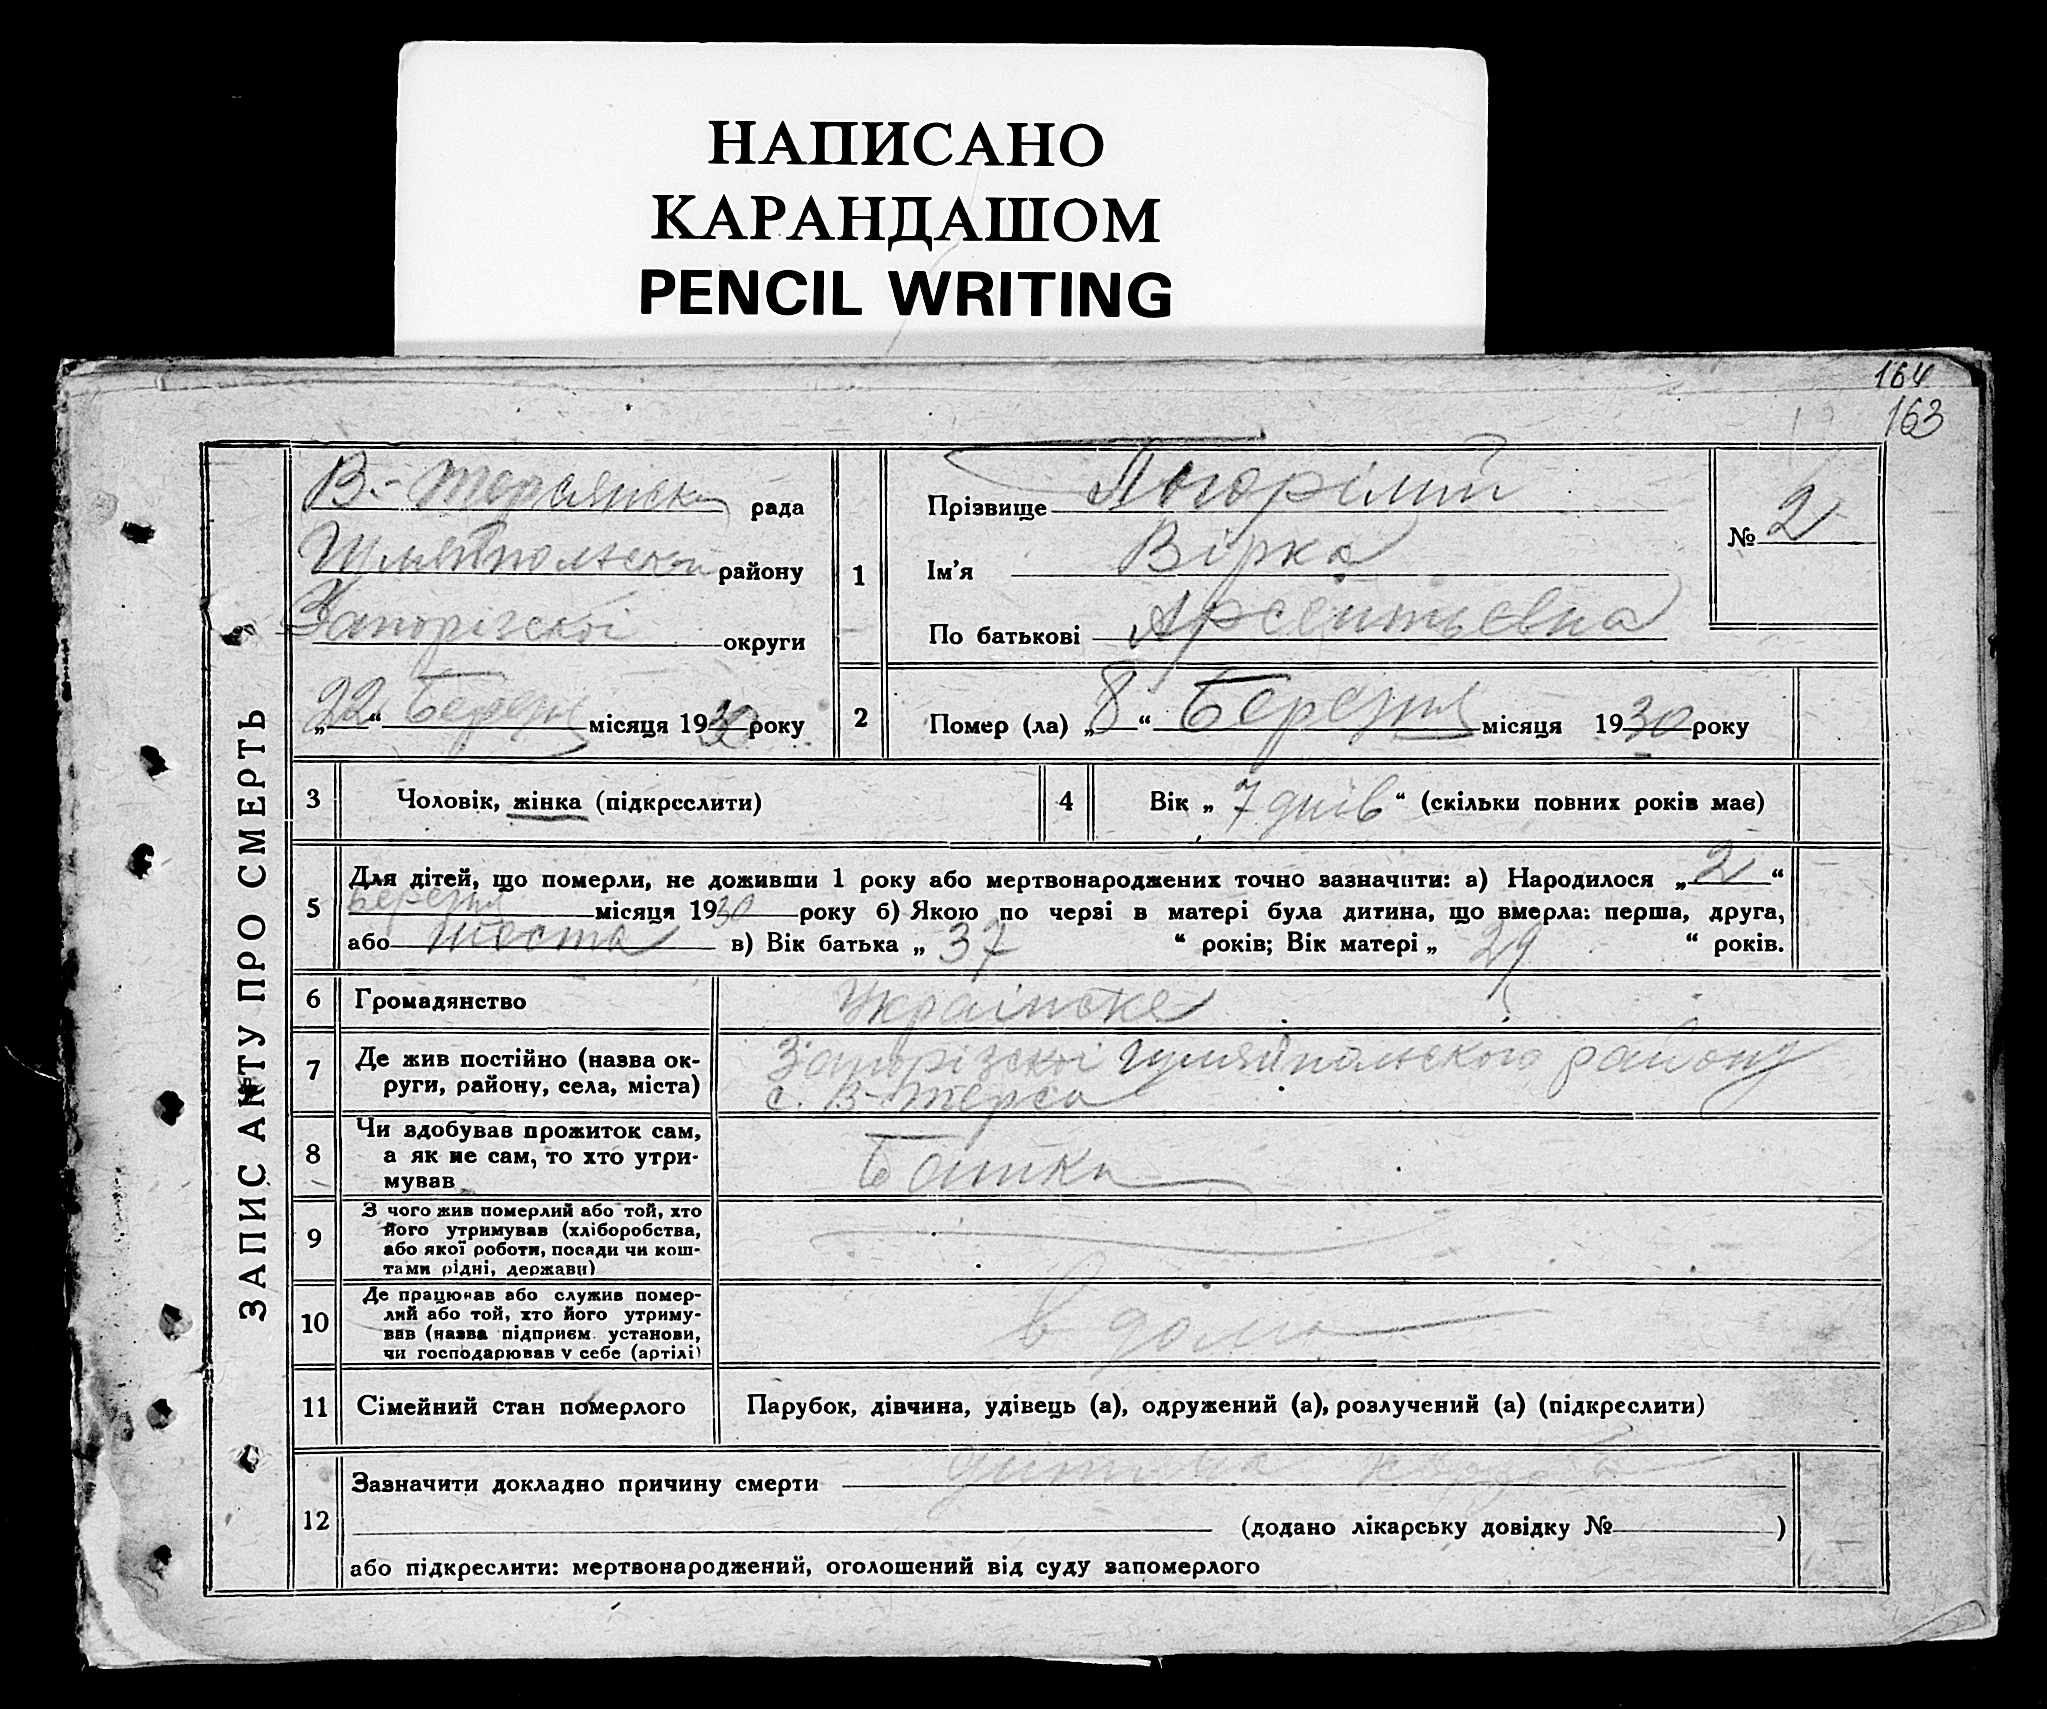 НАПИСАНО
КАРАНДАШОМ
PENCIL WRITING
164
163
ЗАПИС АКТУ ПРО СМЕРТЬ
В.-Терсянська рада
Гуляйпольского району
Запорізскої округи
„22“ Березня місяця 1930 року
1
Прізвище Погорілий
Ім'я Вірка
По батькові Арсентьєвна
№ 2
2
Помер (ла) „8“ Березня місяця 1930 року
3 Чоловік, жінка (підкреслити)
4 Вік „7 днів“ (скільки повних років має)
5 Для дітей, що померли, не доживши 1 року або мертвонароджених точно зазначити: а) Народилося „2“
Березня місяця 1930 року б) Якою по черзі в матері була дитина, що вмерла: перша, друга,
або шоста в) Вік батька „37“ років; Вік матері „29“ років.
6 Громадянство Украінске
7 Де жив постійно (назва ок-
руги, району, села, міста)
Запорізскоі Гуляйпольского району
с. В-Терса
8 Чи здобував прожиток сам,
а як не сам, то хто утри-
мував
Батько
9 З чого жив померлий або той, хто
його утримував (хліборобства,
або якої роботи, посади чи кош-
тами рідні, держави)
10 Де працював або служив помер-
лий або той, хто його утриму-
вав (назва підприєм. установи,
чи господарював у себе (артілі)
в дома
11 Сімейний стан померлого Парубок, дівчина, удівець (а), одружений (а), розлучений (а) (підкреслити)
12 Зазначити докладно причину смерти
(додано лікарську довідку № )
або підкреслити: мертвонароджений, оголошений від суду запомерлого